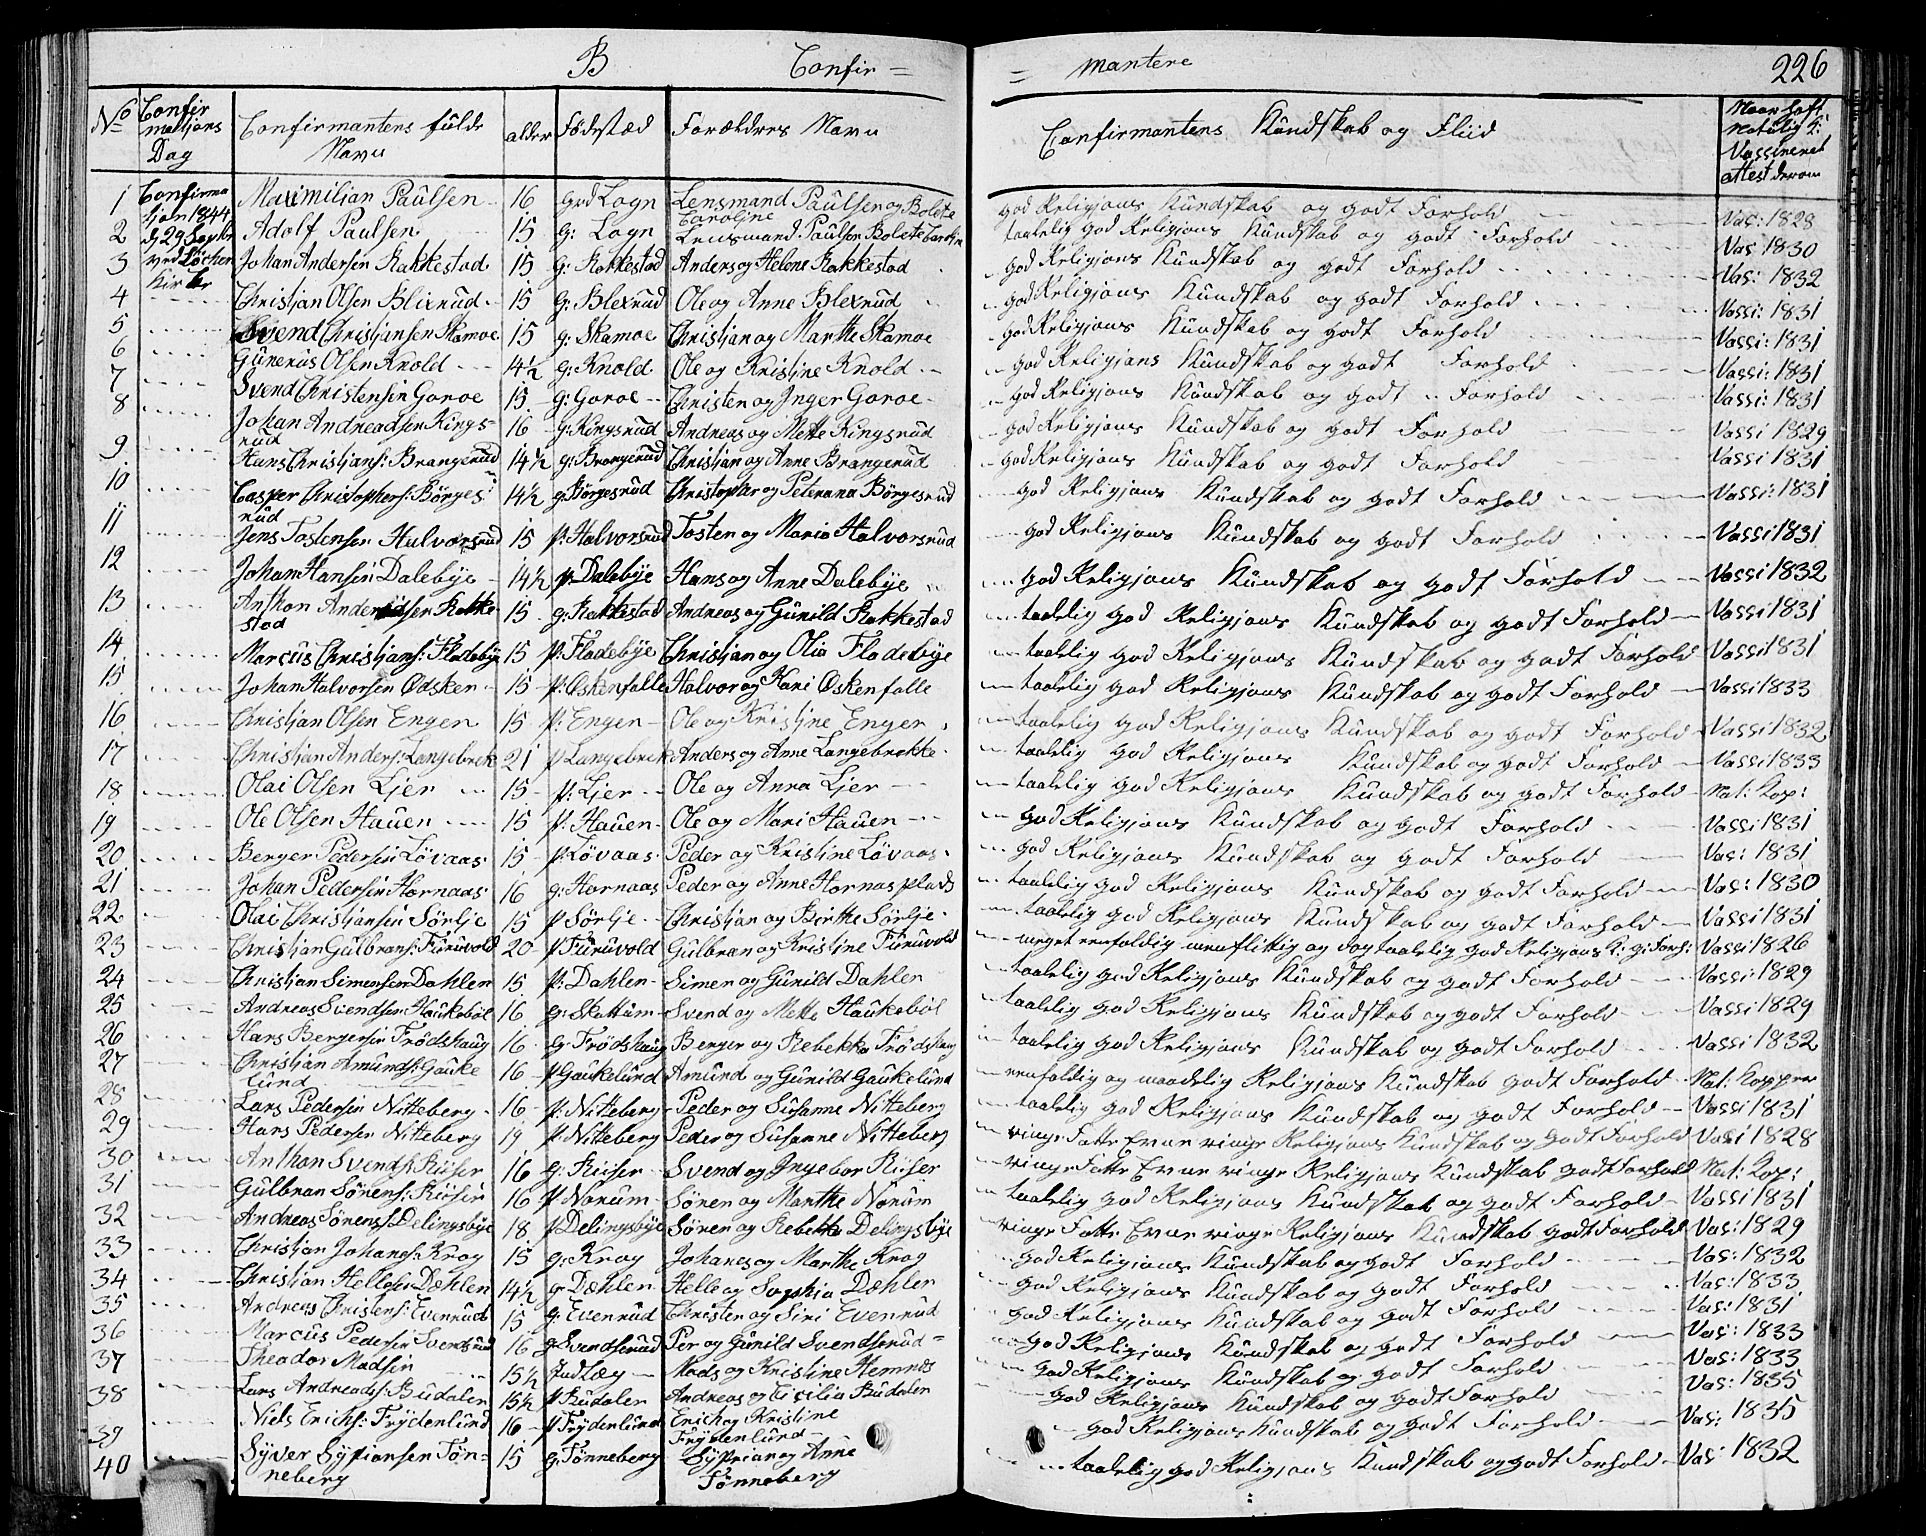 B Confir = = mantere 226
No Confir matjons Dag Confirmantens fulde Navn alder Fødestæd Forældres Navn Confirmantens Kundskab og Fliid Naar haft Natülig K: Vassineret Attest derom
1 Confirma Maximilian Paulsen 16 grd Logn Lensmand Paulsen og Bolete Caroline god Religjons Kundskab og godt Forhold Vas: 1828
2 tjon 1844 d 29 Septbr Adolf Paulsen 15 g: Logn Lensmand Paulsen Bolete Carolin taalelig god Religjons Kundskab og godt Forhold Vas 1830
3 ved Løchen Kirke Johan Andersen Rakkestad 15 g: Rakkestad Anders og Helene Rakkestad god Religjons Kundskab og godt Forhold Vas: 1832
4 Christjan Olsen Blixrud 15 g: Blexrud Ole og Anne Blexrud god Religjons Kundskab og godt Forhold Vassi: 1831
5 Svend Christjansen Skamoe 15 g: Skamoe Christjan og Marthe Skamoe god Religjons Kundskab og godt Forhold Vassi: 1831
6 Gunerus Olsen Knold 14½ g: Knold Ole og Kristine Knold god Religjons Kundskab og godt Forhold Vassi: 1831
7 Svend Christensen Goroe 15 g: Goroe Christen og Inger Goroe god Religjons Kundskab og godt Forhold Vassi: 1831
8 Johan Andreadsen Kings= rud 16 g: Kingsrud Andreas og Mette Kingsrud god Religjons Kundskab og godt Forhold Vassi 1829
9 Hans Christjans: Brangerud 14½ g: Brangerud Christjan og Anne Brangerud god Religjons Kundskab og godt Forhold Vassi 1831
10 Casper Christophers: Börges= rud 14½ g: Börgesrud Christopher og Peternna Börgesrud god Religjons Kundskab og godt Forhold Vassi: 1831
11 Jens Tostensen Halvorsrud 15 p: Halvorsrud Tosten og Maria Halvorsrud god Religjons Kundskab og godt Forhold Vassi 1831
12 Johan Hansen Dalebye 14½ p: Dalebye Hans og Anne Dalebye god Religjons Kundskab og godt Forhold Vassi 1832
13 Anthon Andersen Rakke stad 15 g: Rakkestad Andreas og Gunild Rakkestad taalelig god Religjons Kundskab og godt Forhold Vassi 1831
14 Marcus Christjans: Fladebye 15 p: Fladebye Christjan og Olia Fladebye taalelig god Religjons Kundskab og godt Forhold Vassi 1831
15 Johan Halvorsen Ødsken 15 p: Øskenfalle Halvor og Kari Øskenfalle taalelig god Religjons Kundskab og godt Forhold Vassi 1833
16 Christjan Olsen Engen 15 p: Engen Ole og Kristine Engen taalelig god Religjons Kundskab og godt Forhold Vassi 1832
17 Christjan Anders: Langebrek 21 p Langebrek Anders og Anne Langebrekke taalelig god Religjons Kundskab og godt Forhold Vassi 1833
18 Olai Olsen Lier 15 p: Lier Ole og Anna Lier taalelig god Religjons Kundskab og godt Forhold Nat: Kop:
19 Ole Olsen Hauen 15 p: Hauen Ole og Mari Hauen god Religjons Kundskab og godt Forhold Vassi 1831
20 Berger Pedersen Lövaas 15 p Lövaas Peder og Kristine Lövaas god Religjons Kundskab og godt Forhold Vas: 1831
21 Johan Pedersen Hornaas 16 g: Hornaas Peder og Anne Hornas plads taalelig god Religjons Kundskab og godt Forhold Vas: 1830
22 Olai Christjansen Sörlje 15 p Sörlje Christjan og Birthe Sörlje taalelig god Religjons Kundskab og godt Forhold Vassi 1831
23 Christjan Gulbrans: Furuvold 20 p Furuvold Gulbran og Kristine Furuvold meget eenfoldig menflittig og dog taalelig god Religjons K: g: Forh: Vassi 1826
24 Christjan Simensen Dahlen 15 p: Dahlen Simen og Gunild Dahlen taalelig god Religjons Kundskab og godt Forhold Vassi 1829
25 Andreas Svendsen Haukebøl 16 g: Skattum Svend og Mette Haukebøl taalelig god Religjons Kundskab og godt Forhold Vassi 1829
26 Hans Bergersen Frödshaug 16 g Frödshaug Berger og Rebekka Frödshaug taalelig god Religjons Kundskab og godt Forhold Vassi 1832
27 Christjan Amunds: Gauke lund 16 p Gaukelund Amund og Gunild Gaukelund eenfoldig og maadelig Religjons Kundskab godt Forhold Nat: Kopper
28 Lars Pedersen Nitteberg 16 p: Nitteberg Peder og Susanne Nitteberg taalelig god Religjons Kundskab og godt Forhold Vassi 1831
29 Hans Pedersen Nitteberg 19 p: Nitteberg Peder og Susanne Nitteberg ringe Fatte Evne ringe Religjons Kundskab og godt Forhold Vasi 1828
30 Anthon Svends: Riiser 16 g: Riiser Svend og Ingebor Riiser ringe Fatte Evne ringe Religjons Kundskab godt Forhold Nat: Kop:
31 Gulbran Sörens: Riiser 16 p Narum Sören og Marthe Narum taalelig god Religjons Kundskab og godt Forhold Vassi 1831
32 Andreas Sörens: Delingsbye 18 p Delingsbye Sören og Rebekka Delingsbye ringe Fatte Evne ringe Religjons Kundskab godt Forhold Vas: 1829
33 Christjan Johans: Krog 15 g: Krog Johanes og Marthe Krog god Religjons Kundskab og godt Forhold Vas: 1832
34 Christjan Hellesen Dæhlen 14½ g Dæhlen Helle og Sophia Dæhlen god Religjons Kundskab og godt Forhold Vas: 1833
35 Andreas Christens: Evenrud 15 g: Evenrud Christen og Siri Evenrud god Religjons Kundskab og godt Forhold Vas: 1831
36 Marcus Pedersen Svendsrud 16 g Svendserud Per og Gunild Svendserud= god Religjons Kundskab og godt Forhold Vas: 1833
37 Theador Madsen 15½ Mads og Kristine Hemnes god Religjons Kundskab og godt Forhold Vas: 1833
38 Lars Andreads: Budalen 15½ p Budalen Andreas og Cicilia Budalen god Religjons Kundskab og godt Forhold Vas: 1835
39 Niels Erichs: Frydenlund 16 p Frydenlund Erich og Kristine Frydenlund god Religjons Kundskab og godt Forhold Vas: 1835
40 Syver Sypriansen Tøn= neberg 15 g: Tønneberg Syprian og Anne Tønneberg taalelig god Religjons Kundskab og godt Forhold Vas: 1832